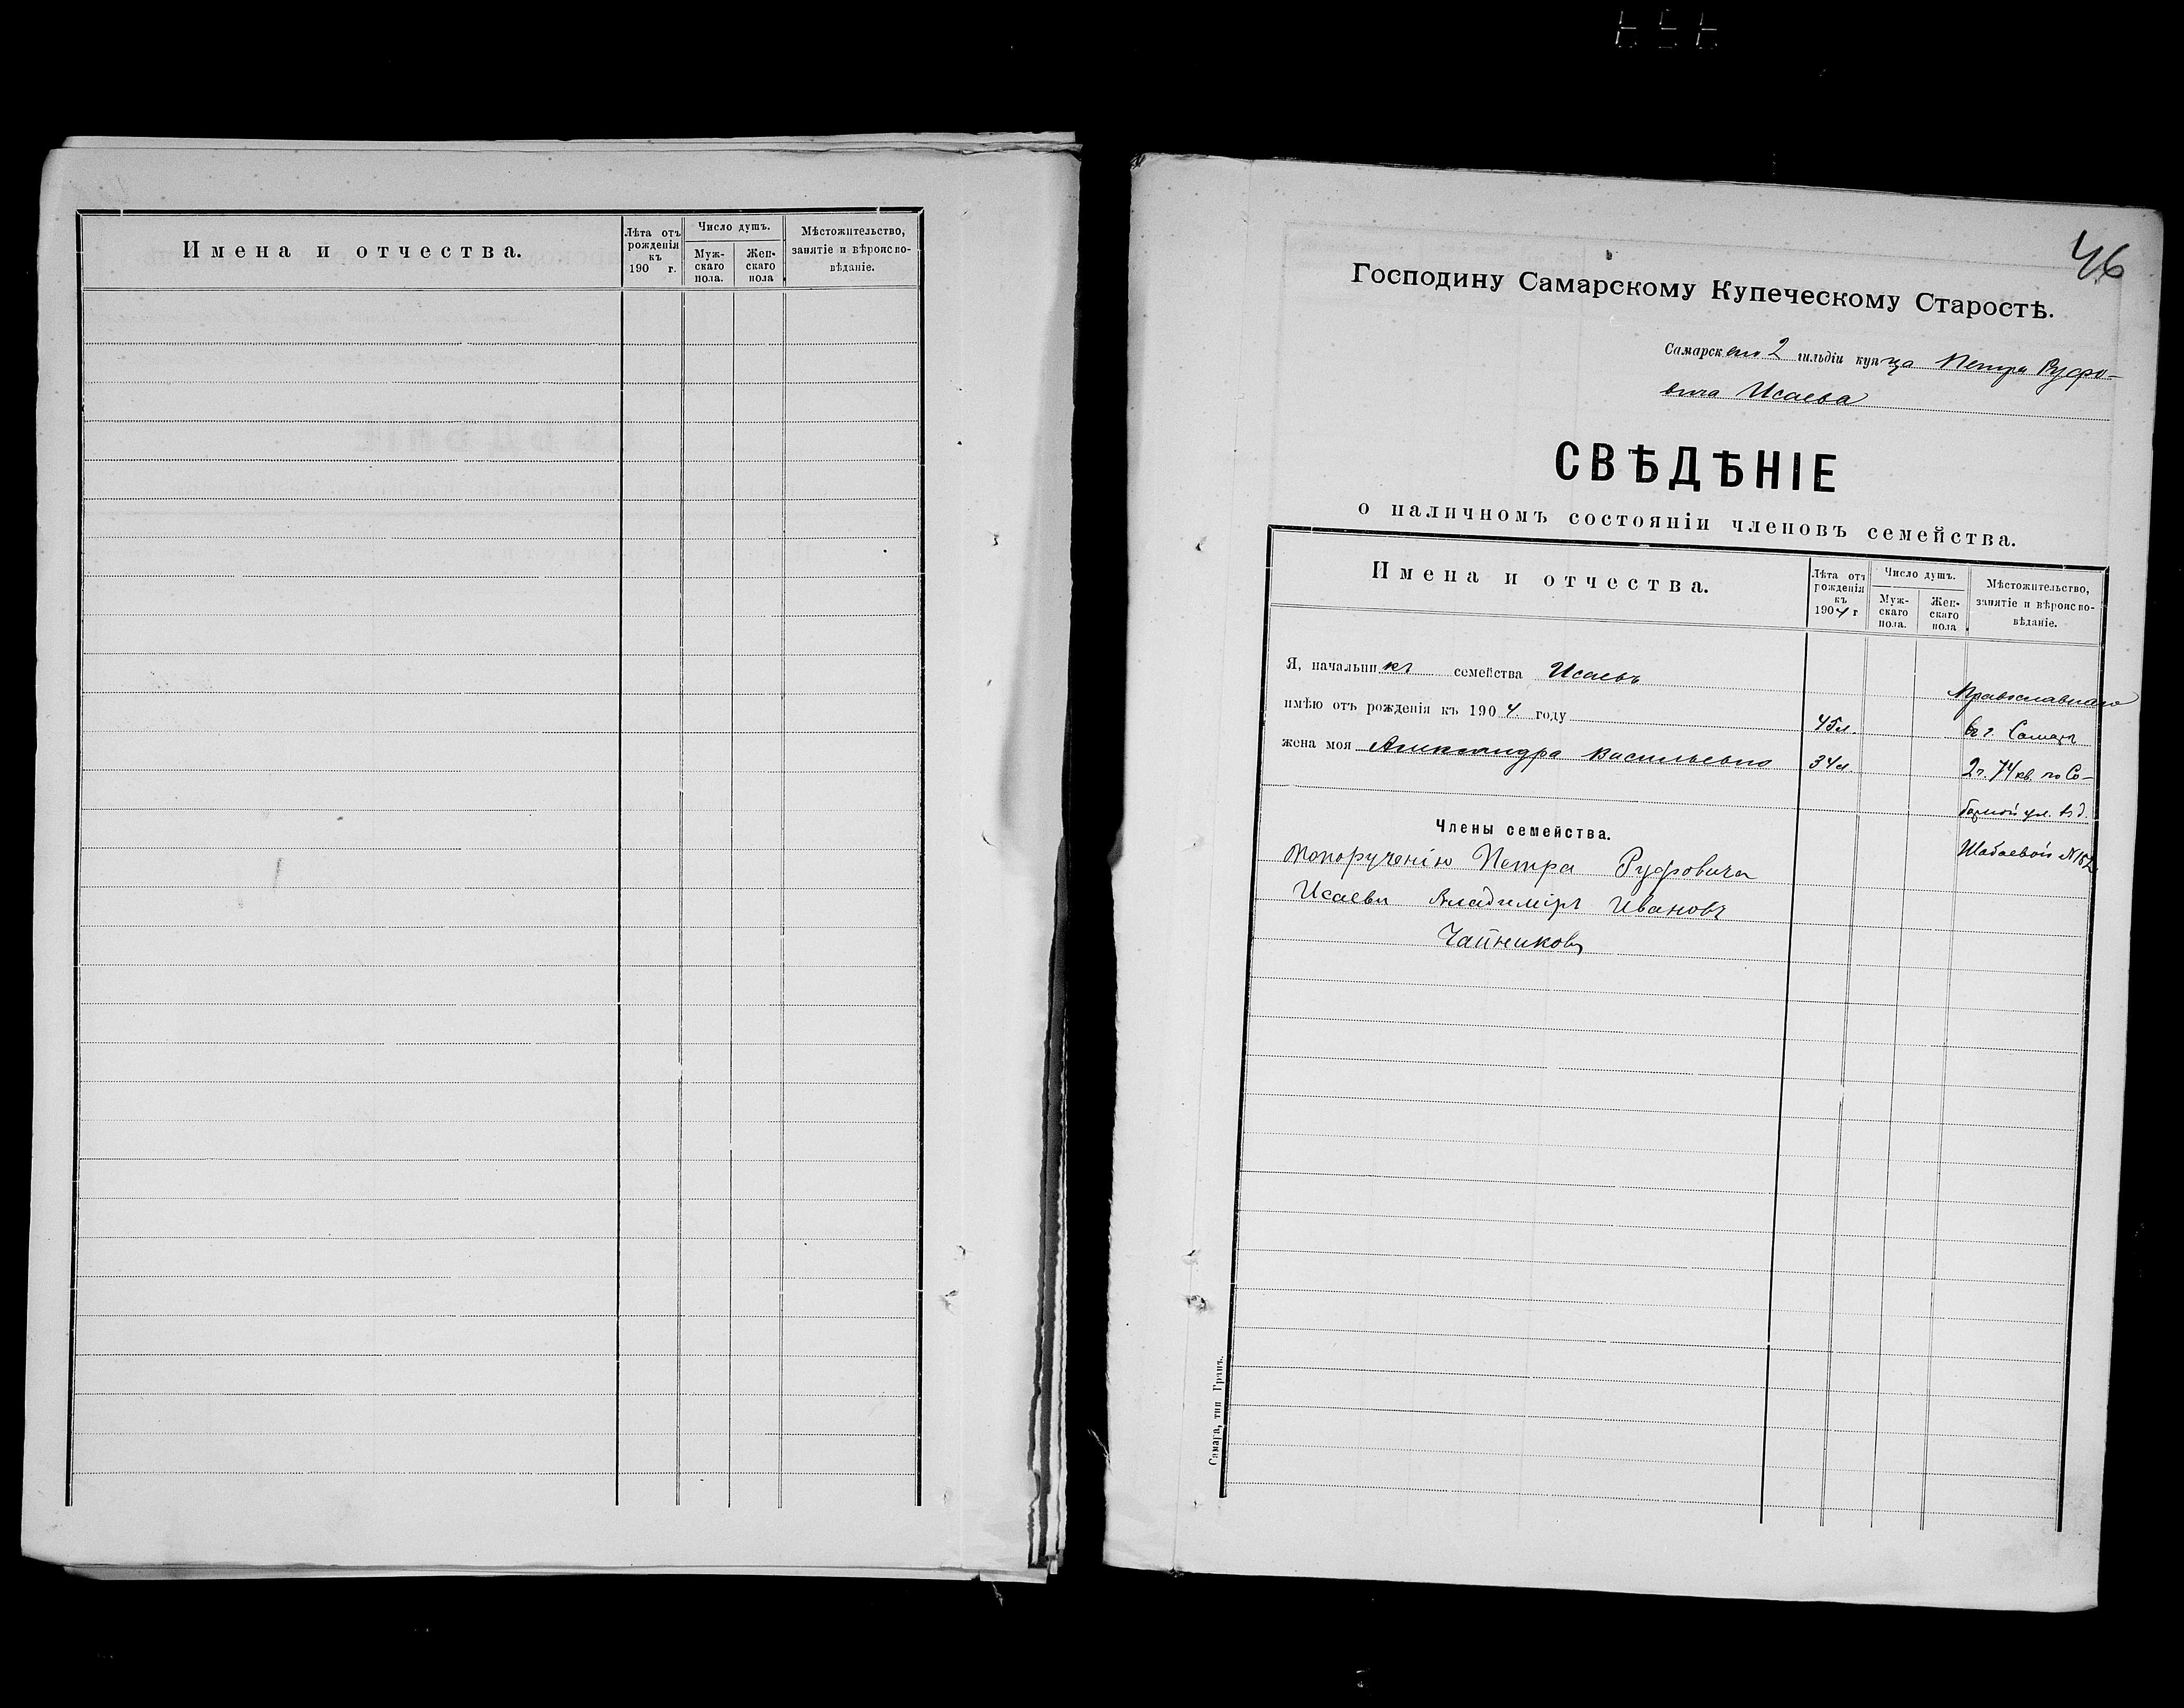 Имена и отчества.
Лѣта отъ рожденія къ 190 г.
Число душъ.
Муж-скаго пола.
Жен-скаго пола
Мѣстожительство, занятіе и вѣроиспо-вѣданіе.
46
Господину Самарскому Купеческому Старостѣ.
Самарскаго 2 гильдіи купца Петра Руфо-
вича Исаева
СВѢДѢНІЕ
о наличномъ состояніи членовъ семейства.
Имена и отчества.
Лѣта отъ рожденія къ 1904 г
Число душъ.
Муж-скаго пола.
Жен-скаго пола
Мѣстожительство, занятіе и вѣроиспо-вѣданіе.
Я, начальникъ семейства Исаевъ
Православнаго
имѣю отъ рожденія къ 1904 году 45 л. въ г. Самарѣ
жена моя Александра Васильевна 34 л. 2 ч. 74 кв. по Со-
борной ул. въ д.
Члены семейства.
Шабаевой № 152
По порученію Петра Руфовича
Исаева Владиміръ Ивановъ
Чайниковъ
Самара, тип Гринъ.